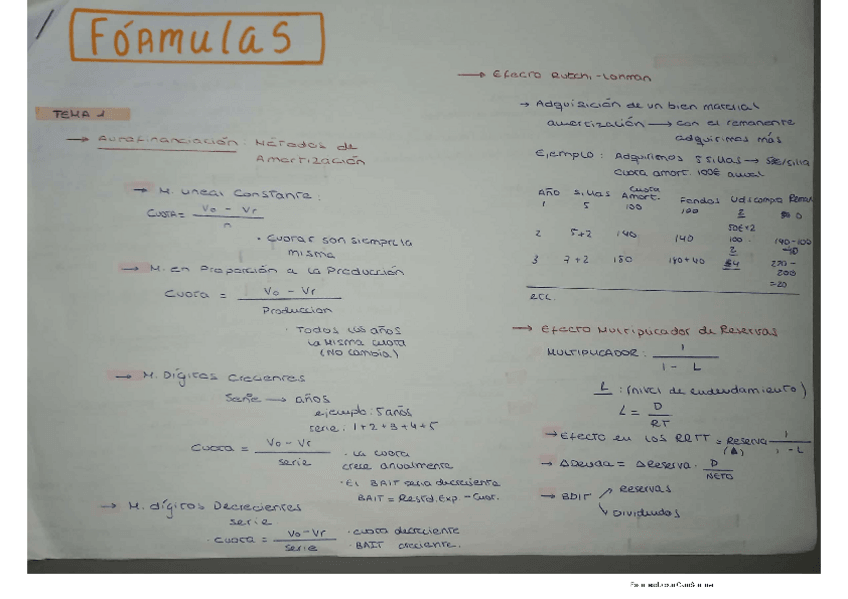 FÓRMULAS
TEMA 1
→ Autofinanciación: Métodos de
Amortización
→ M. Lineal Constante:
Cuota = Vo - Vr / n
· Cuotas son siempre la
misma
→ M. en Proporción a la Producción
Cuota = Vo - Vr / Produccion
· Todos los años
la misma cuota
(No cambia)
→ M. Dígitos Crecientes
Serie → años
ejemplo: 5 años
serie: 1+2+3+4+5
Cuota = Vo - Vr / serie
· La cuota
crece anualmente
· El BAIT seria decreciente
BAIT = Restd. Exp - Cuot.
→ M. dígitos Decrecientes
serie
· Cuota = Vo - Vr / serie
· cuota decreciente
· BAIT creciente.
→ Efecto
→ Adquisición de un bien material
amortización → con el remanente
adquirimos más
Ejemplo: Adquirimos 5 sillas →
cuota amort. 100€ anual
Año Sillas Cuota Amort. Fondos Ud s compra
1 5 100 100 2 0
50€x2
2 5+2 140 140 100 140-100
2 40
3 7+2 180 180+40 4 220-
200
=20
etc.
→ Efecto Multiplicador de Reservas
MULTIPLICADOR: 1 / 1 - L
L: (nivel de endeudamiento)
L = D / RT
→ Efecto en los RRTT = Reserva 1 / 1 - L
(Δ)
→ ΔDeuda = ΔReserva · D / NETO
→ BDIT
Reservas
Dividendos